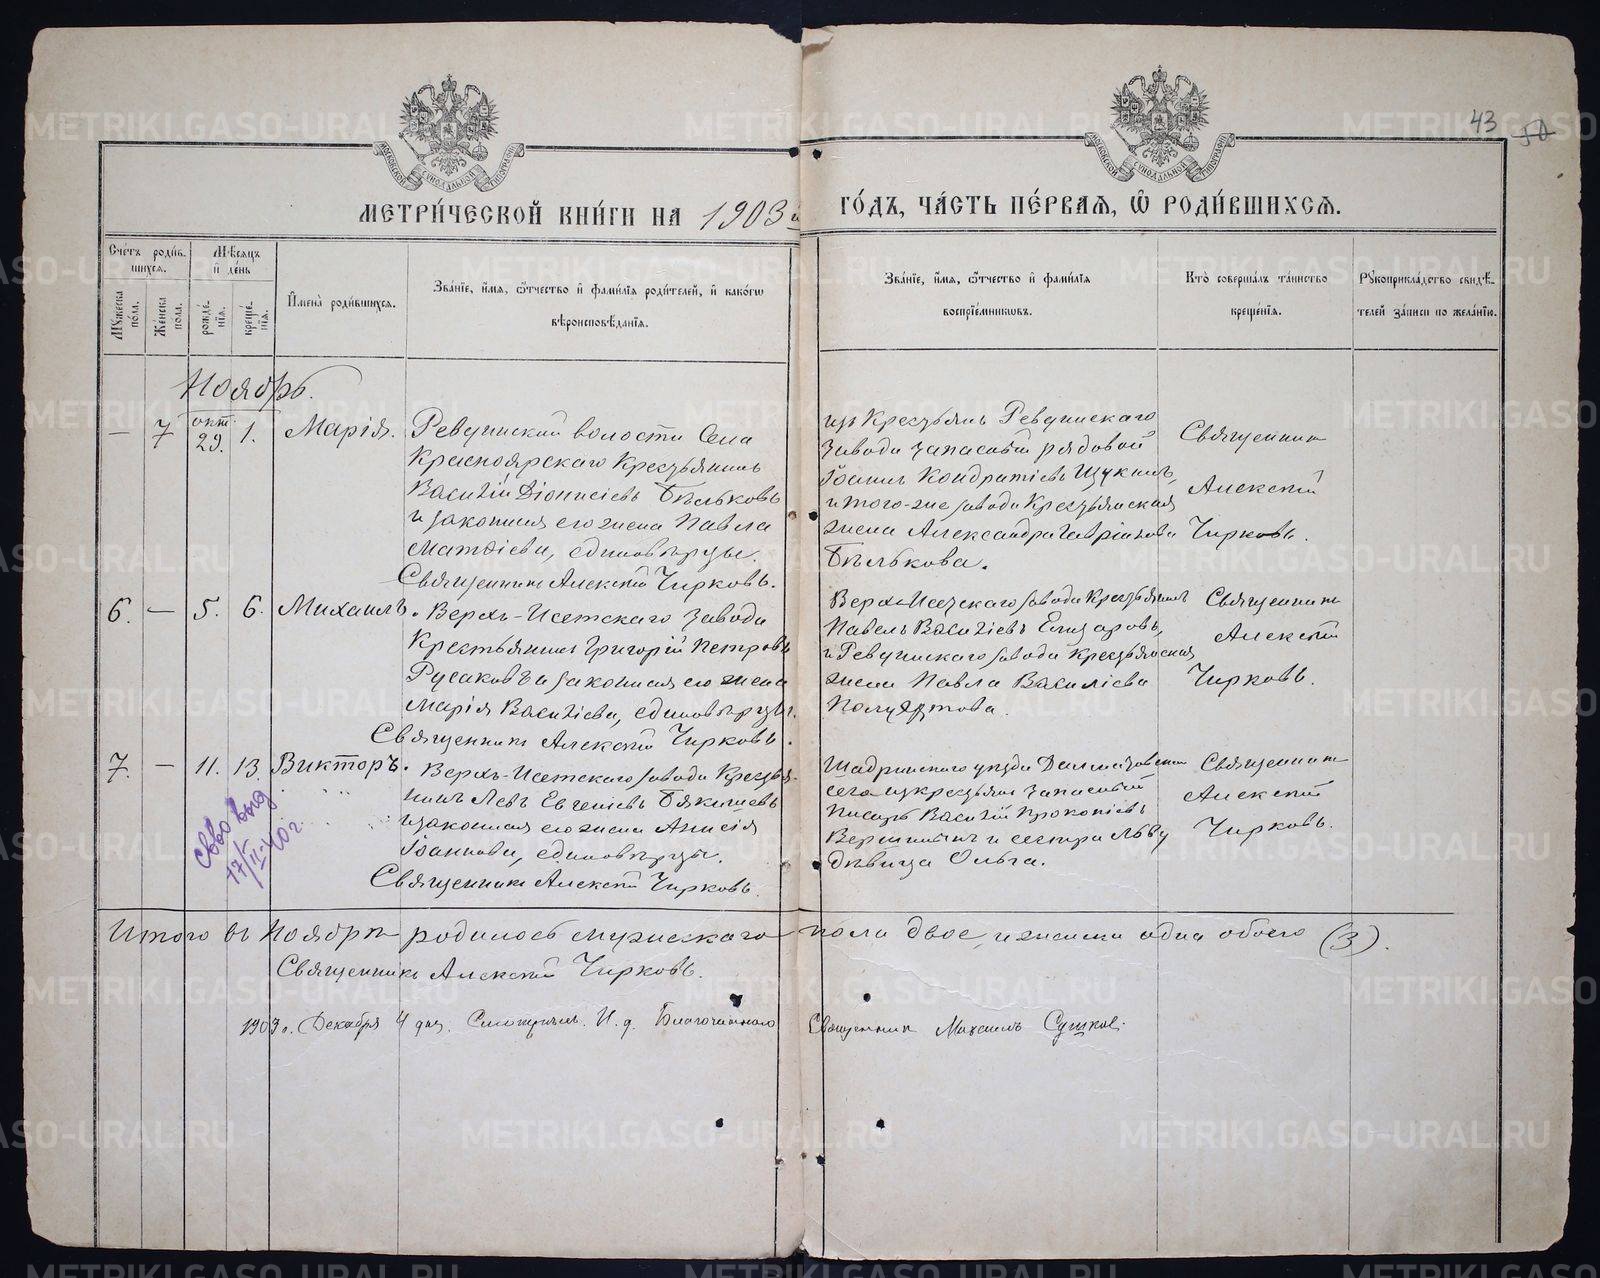 43 50
МОСКОВСКОЙ СѴНОДАЛЬНОЙ ТИПОГРАФІИ
МОСКОВСКОЙ СѴНОДАЛЬНОЙ ТИПОГРАФІИ
МЕТРИ́ЧЕСКОЙ КНИ́ГИ НА 1903й ГО́ДЪ, ЧА́СТЬ ПЕ́РВАѦ, Ѡ РОДИ́ВШИХСѦ.
Сче́тъ роди́вшихсѧ.
Мѣ́сѧцъ и҆ де́нь
Мꙋ́жеска по́ла.
Же́нска пола.
рожде́нїѧ.
креще́нїѧ.
И҆мена̀ роди́вшихсѧ.
Зва́нїе, и҆́мѧ, ѻ҆́тчество и҆ фами́лїѧ роди́телей, и҆ како́гѡ
вѣроисповѣ́данїѧ.
Зва́нїе, и҆́мѧ, ѻ҆́тчество и҆ фами́лїѧ
воспрїе́мникѡвъ.
Кто̀ соверша́лъ та́инство
креще́нїѧ.
Рꙋкоприкла́дство свидѣ́телей за́писи по жела́нїю.
Ноябрь.
— 7 окт. 29. 1. Марія.
Ревдинской волости Села
Красноярскаго Крестьянинъ
Василій Діонисіевъ Бѣльковъ
и законная его жена Павла
Матѳіева, единовѣрцы.
Священникъ Алексій Чирковъ.
изъ Крестьянъ Ревдинскаго
завода запасной рядовой
Іоаннъ Кондратіевъ Щукинъ,
и того-же завода Крестьянская
жена Александра Гавріилова
Бѣлькова.
Священникъ
Алексій
Чирковъ.
6. — 5. 6. Михаилъ.
Верхъ-Исетскаго завода
Крестьянинъ Григорій Петровъ
Русаковъ и законная его жена
Марія Василіева, единовѣрцы.
Священникъ Алексій Чирковъ.
Верхъ-Исетскаго завода Крестьянинъ
Павелъ Василіевъ Елизаровъ,
и Ревдинскаго завода Крестьянская
жена Павла Василіева
Священникъ
Алексій
Чирковъ.
7. — 11. 13. Викторъ.
Верхъ-Исетскаго завода Крестьянинъ
Левъ Евгеніевъ
и законная его жена Анисія
Іоаннова, единовѣрцы.
Священникъ Алексій Чирковъ.
Шадринскаго уѣзда Далматовскаго
села изъ крестьянъ запасный
писарь Василій Прокопіевъ
и сестра Льву
дѣвица Ольга.
Священникъ
Алексій
Чирковъ.
св-во выд
17/II-40г.
Итого въ Ноябрѣ родилось мужескаго пола двое, и женска одна обоего (3).
Священникъ Алексій Чирковъ.
1903 г. Декабря 4 дня. Смотрѣлъ. И. д. Благочиннаго Священникъ Михаилъ Сушковъ.
METRIKI.GASO-URAL.RU